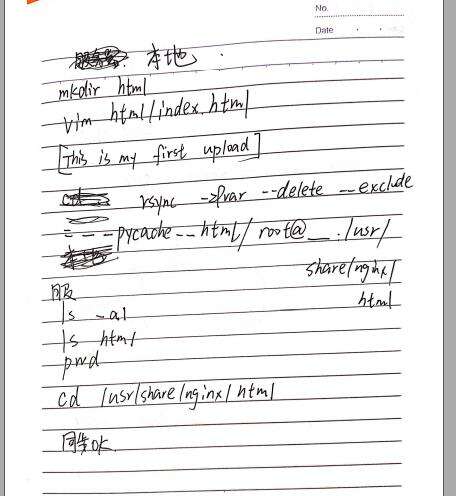 No.
Date
本地
mkdir html
vim html/index.html
[This is my first upload]
rsync -zPvar --delete --exclude
=---pycache-- html/ root@__:/usr/
share/nginx/
html
服
ls -al
ls html
pwd
cd /usr/share/nginx/html
同步OK